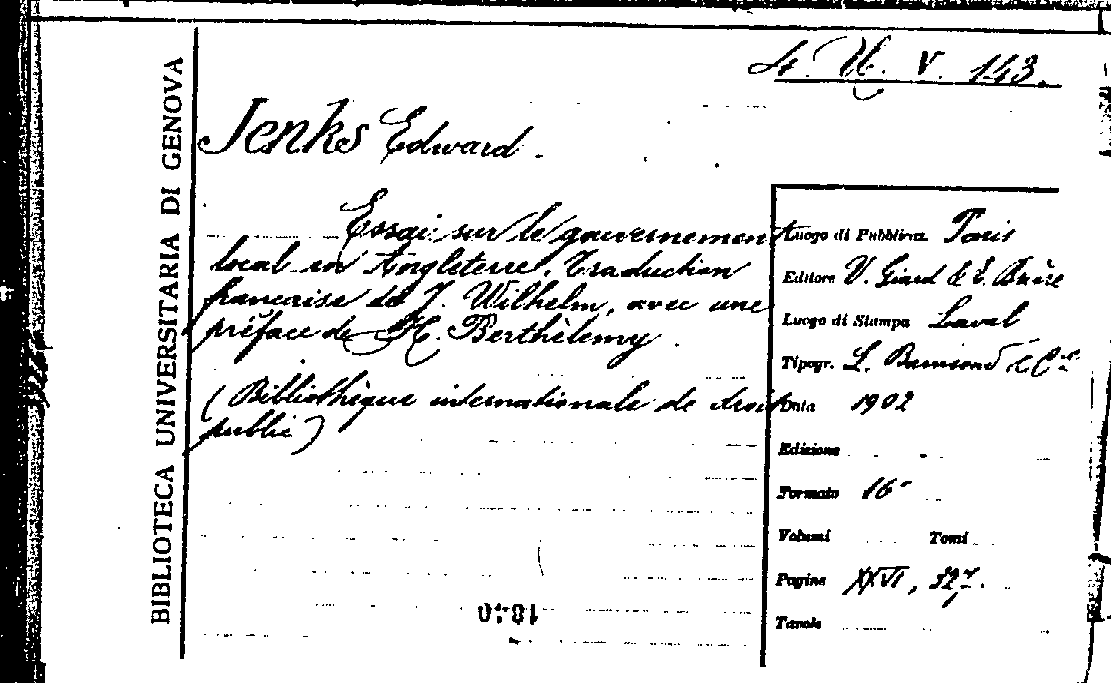 4. U. V. 143.
BIBLIOTECA UNIVERSITARIA DI GENOVA
Jenks Edward.
Essai sur le gouvernement
local en Angleterre. Traduction
française de J. Wilhelm, avec une
préface de H. Berthèlemy.
(Bibliothèque internationale de droit
public)
Luogo di Pubblicaz. Paris
Editore V. Giard & E. Brière
Luogo di Stampa Laval
Tipogr. L. & C.ie
Data 1902
Edizione
Formato 16°
Volumi Tomi
Pagine XXVI, 327.
Tavole